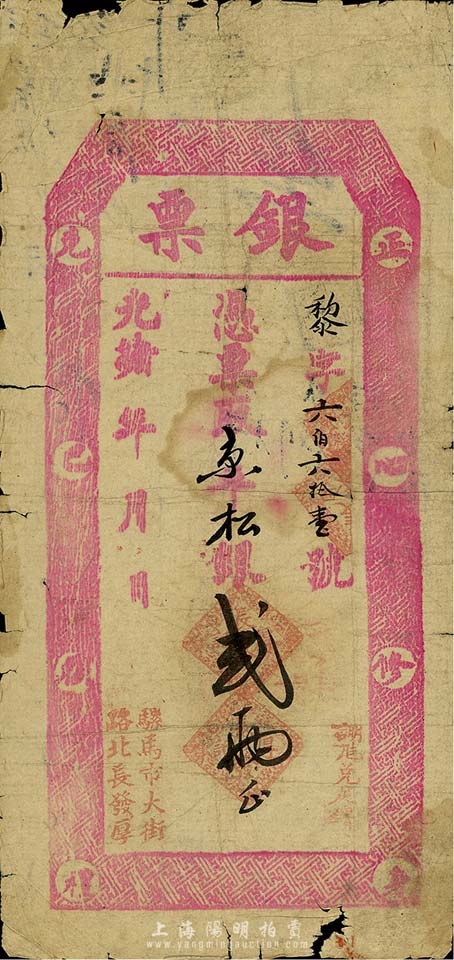 銀票
黎字六佰六拾壹號
憑票取
京松
銀
弍兩正
光緒年月日
騾馬市大街
路北長發厚
正
心
修
身
克
己
禮
上海陽明拍賣
www.yangmingauction.com